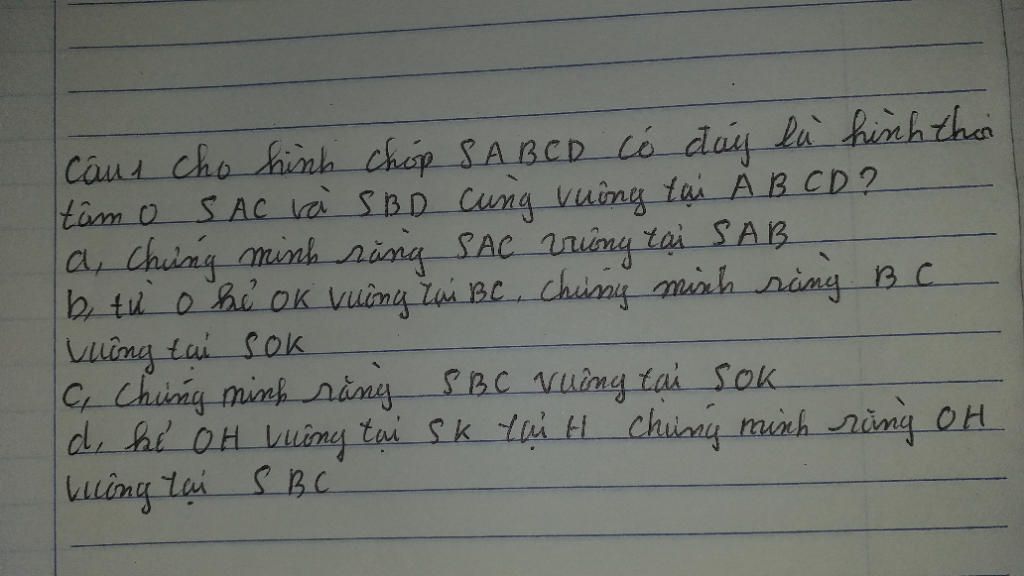 Câu 1 cho hình chóp SABCD có đáy là hình thoi
tâm O SAC và SBD cùng vuông tại ABCD?
a, Chứng minh rằng SAC vuông tại SAB
b, từ O kẻ OK vuông tại BC, Chứng minh rằng BC
vuông tại SOK
c, Chứng minh rằng SBC vuông tại SOK
d, kẻ OH vuông tại SK tại H chứng minh rằng OH
vuông tại SBC